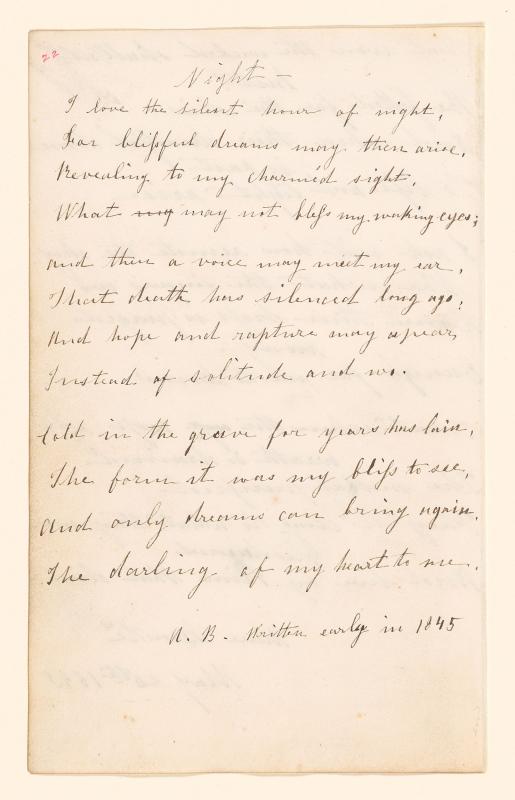 22
Night —
I love the silent hour of night,
For blissful dreams may then arise,
Revealing to my charmed sight,
What my may not bless my waking eyes;
and then a voice may meet my ear,
That death has silenced long ago;
And hope and rapture may apear,
Instead of solitude and wo.
Cold in the grave for years has lain,
The form it was my bliss to see,
And only dreams can bring again,
The darling of my heart to me.
A. B. Written early in 1845